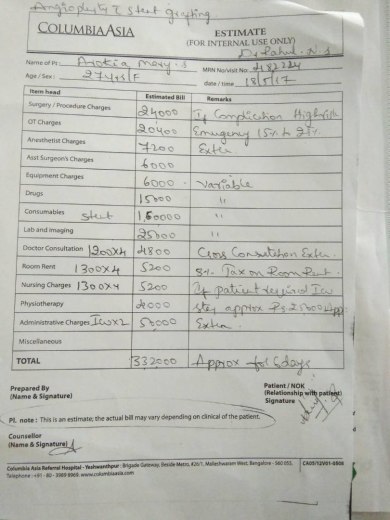 Angioplasty & Stent grafting
COLUMBIA ASIA
ESTIMATE
(FOR INTERNAL USE ONLY)
Dr Rahul. N. S
Name of Pt: Arokia Mary. S
MRN No/visit No: 482224
Age / Sex: 27 yrs / F
date / time 18/5/17
Item head Estimated Bill Remarks
Surgery / Procedure Charges 24000 If Complication Highrisk
OT Charges 20400 Emergency 15% to 25%
Anesthetist Charges 7200 Extra
Asst Surgeon's Charges 6000
Equipment Charges 6000 - variable
Drugs 15000 "
Consumables stent 1,60000 "
Lab and imaging 25000 "
Doctor Consultation 1200x4 4800 Cross Consultation Extra.
Room Rent 1300x4 5200 Tax on Room Rent.
Nursing Charges 1300x4 5200 If patient required Icu
Physiotherapy 4000 stay approx Rs. 25000
Administrative Charges Icu x2 50000 Extra.
Miscellaneous
TOTAL 332000 Approx for 6days
Prepared By
(Name & Signature)
Patient / NOK
(Relationship with patient)
Signature
Pl. note : This is an estimate; the actual bill may vary depending on clinical of the patient.
Counsellor
(Name & Signature)
Columbia Asia Referral Hospital - Yeshwanthpur : Brigade Gateway, Beside Metro, #26/1, Malleshwaram West, Bangalore - 560 055.
Telephone :+91 - 80 - 3989 8969; www.columbiaasia.com
CA05/12V01-0508